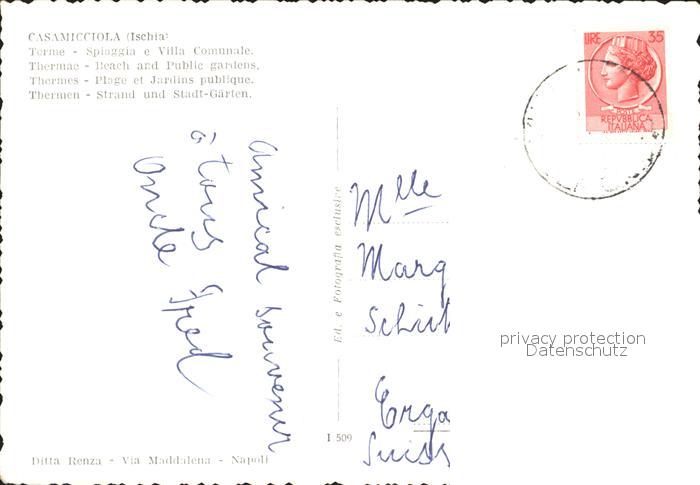 CASAMICCIOLA (Ischia)
Terme - Spiaggia e Villa Comunale.
Thermae - Beach and Public gardens.
Thermes - Plage et Jardins publique.
Thermen - Strand und Stadt-Gärten.
LIRE 35
POSTE
REPVBBLICA
ITALIANA
Amical souvenir
à tous
Oncle Fred
Ed. e Fotografia esclusive
Mlle
Marg
Schüt
Erga
Suiss
privacy protection
Datenschutz
I 509
Ditta Renza - Via Maddalena - Napoli